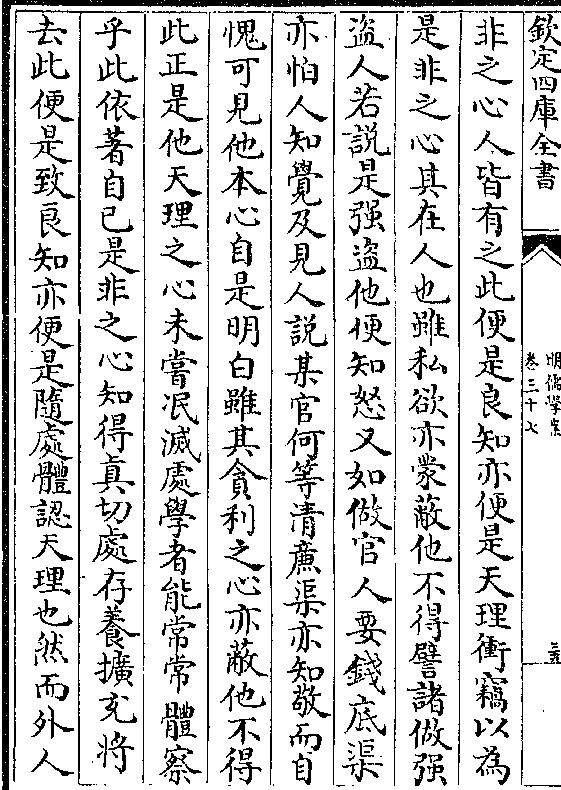 欽定四庫全書
明儒學案
卷三十七
非之心人皆有之此便是良知亦便是天理衝竊以為
是非之心其在人也雖私欲亦蒙蔽他不得譬諸做强
盗人若説是强盗他便知怒又如做官人要錢底渠
亦怕人知覺及見人説某官何等清亷渠亦知敬而自
愧可見他本心自是明白雖其貪利之心亦蔽他不得
此正是他天理之心未嘗泯滅處學者能常常體察
乎此依著自己是非之心知得真切處存養擴充將
去此便是致良知亦便是隨處體認天理也然而外人